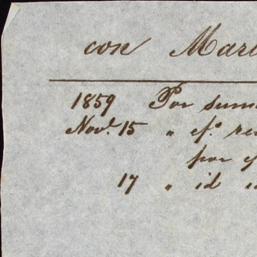 con Mar
1859 Por sum
Nov. 15 " ef.º re
por e
17 " id